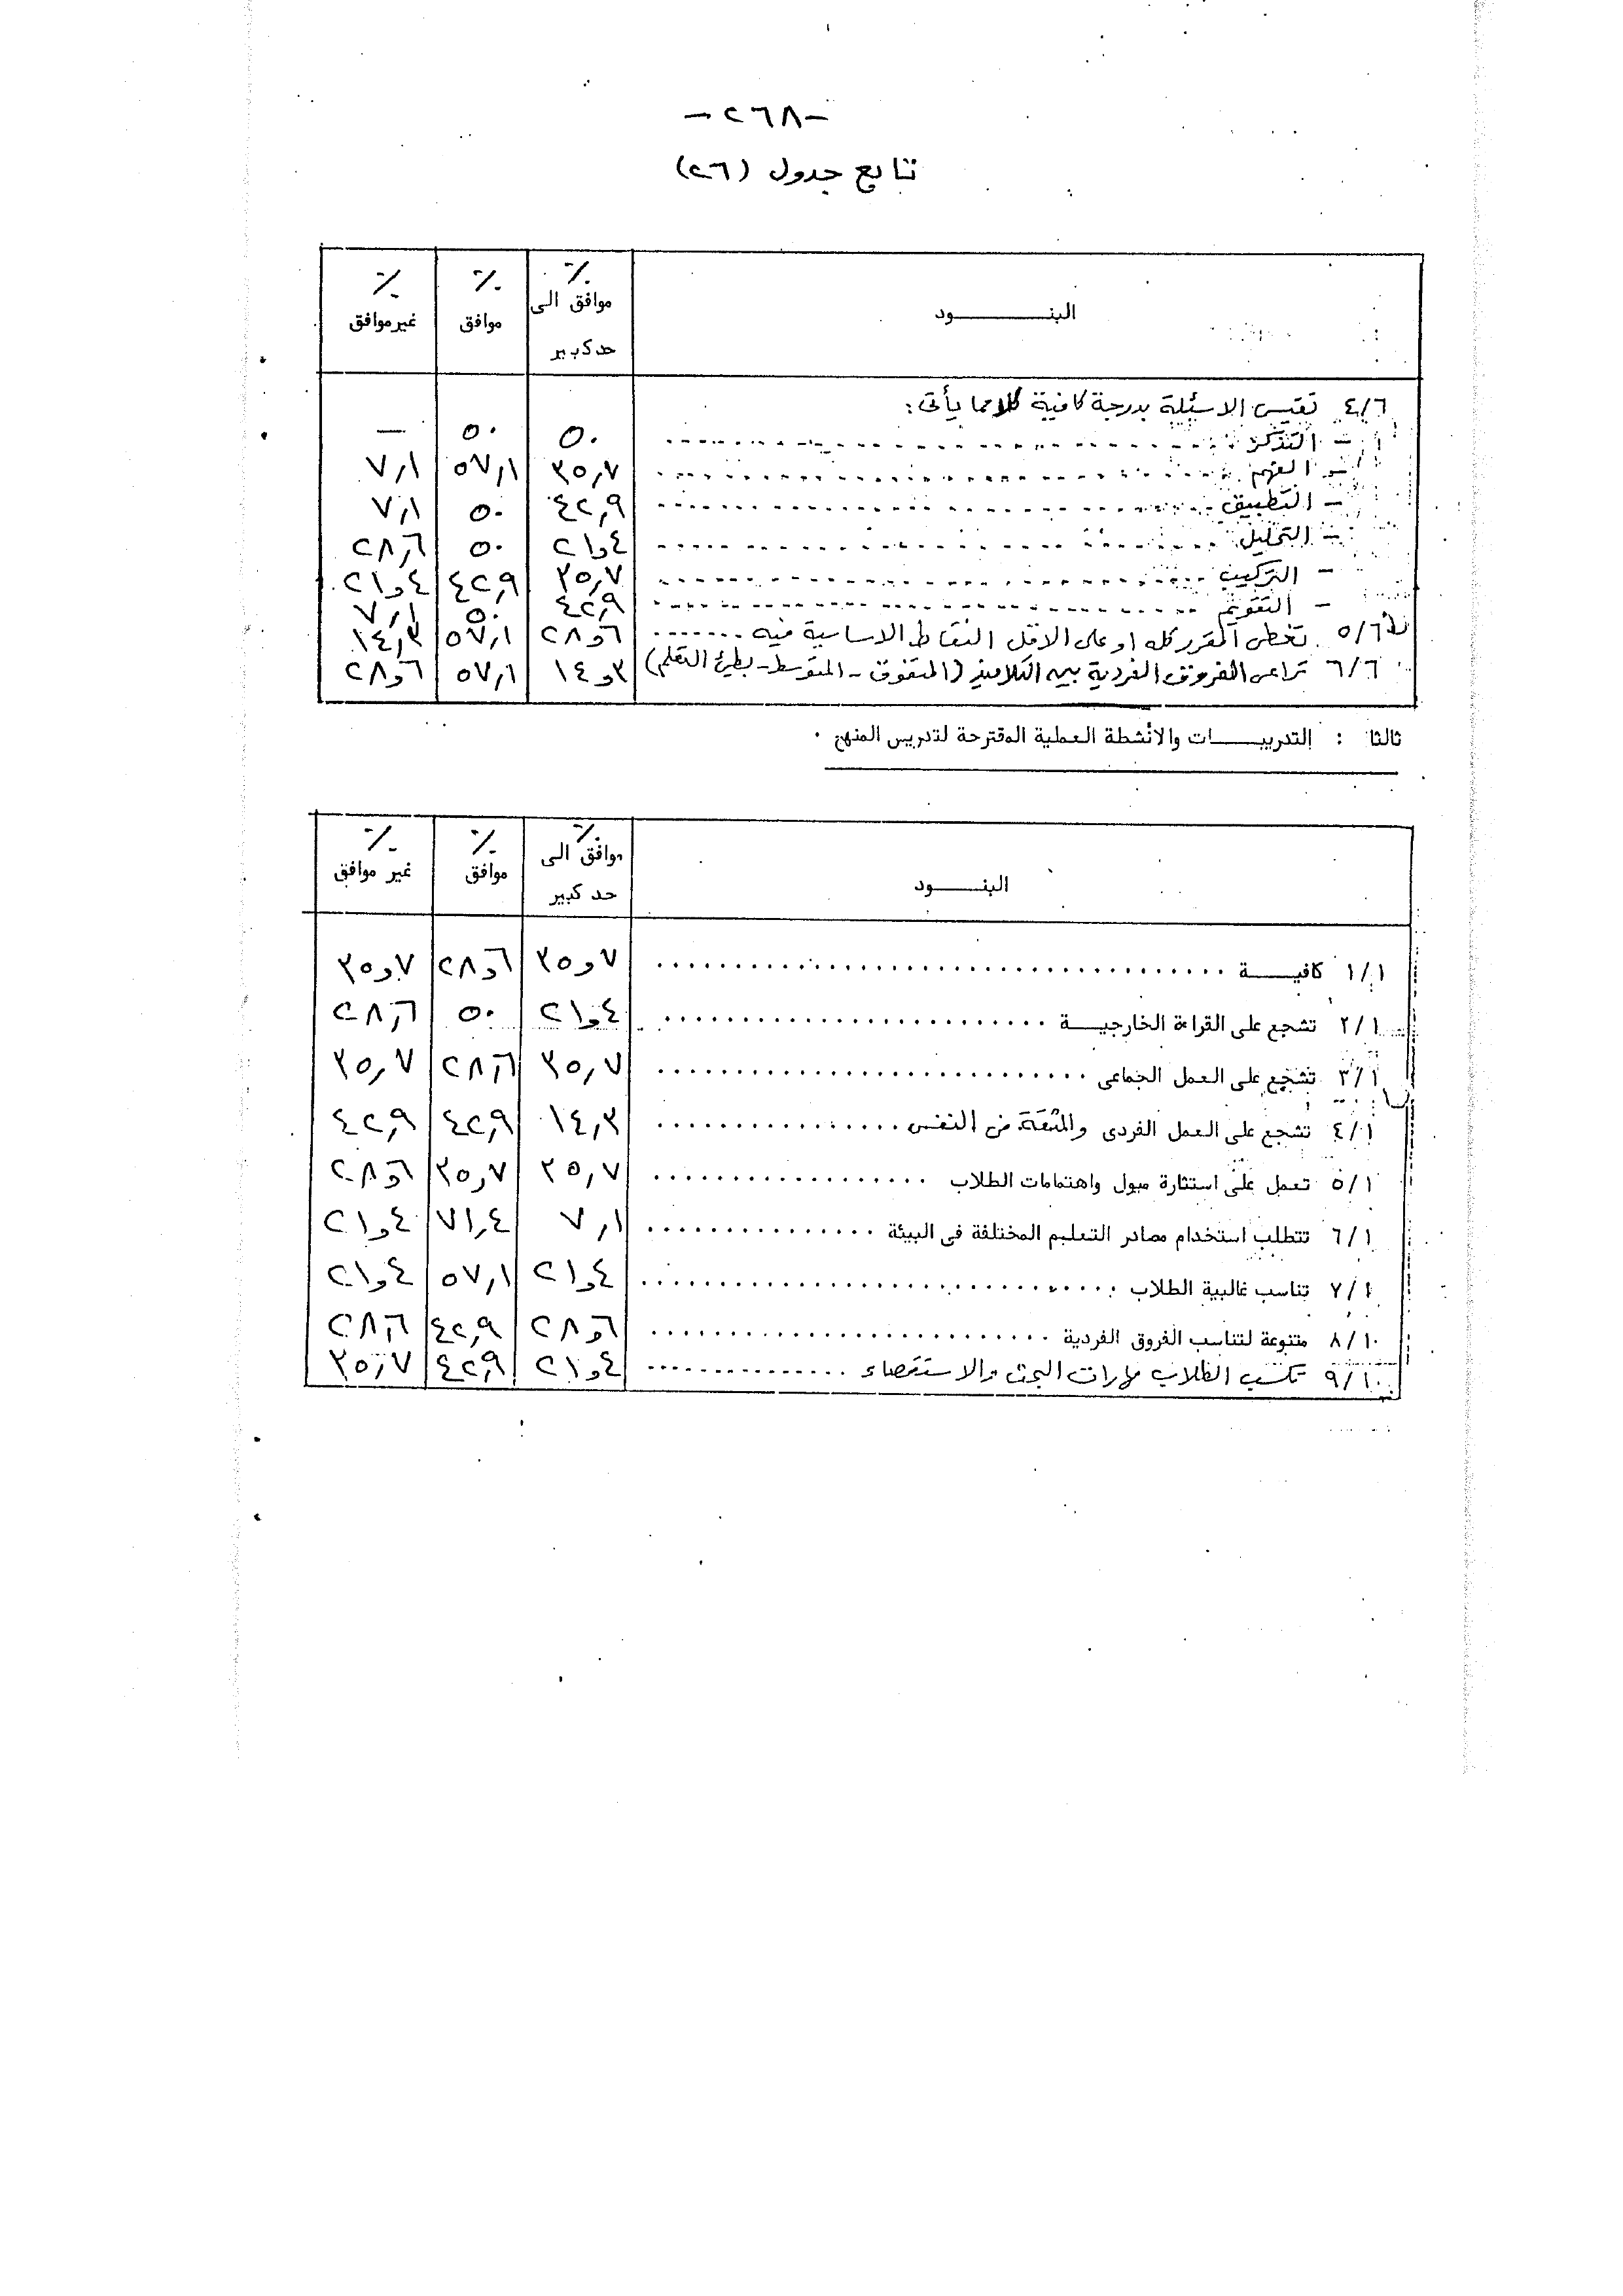 -٢٦٨-
تابع جدول (٢٦)
البنـــــــود | ٪ موافق الى حد كبير | ٪ موافق | ٪ غير موافق
٤/٦ تقيس الاسئلة بدرجة كافية كلا مما يأتى :
- التذكر ........ ٥٠ | ٥٠ | —
- الفهم ........ ٣٥,٧ | ٥٧,١ | ٧,١
- التطبيق ........ ٤٢,٩ | ٥٠ | ٧,١
- التحليل ........ ٢١,٤ | ٥٠ | ٢٨,٦
- التركيب ........ ٣٥,٧ | ٤٢,٩ | ٢١,٤
- التقويم ........ ٤٢,٩ | ٥٠ | ٧,١
٥/٦ تغطى المقرر كله او على الاقل النقاط الاساسية فيه ....... ٢٨,٦ | ٥٧,١ | ١٤,٣
٦/٦ تراعى الفروق الفردية بين التلاميذ (المتفوق - المتوسط - بطئ التعلم) ١٤,٣ | ٥٧,١ | ٢٨,٦
ثالثا : التدريبـــات والأنشطة العملية المقترحة لتدريس المنهج .
البنـــــود | ٪ موافق الى حد كبير | ٪ موافق | ٪ غير موافق
١/١ كافيـــة ........ ٣٥,٧ | ٢٨,٦ | ٣٥,٧
٢/١ تشجع على القراءة الخارجيــة ........ ٢١,٤ | ٥٠ | ٢٨,٦
٣/١ تشجع على العمل الجماعى ........ ٣٥,٧ | ٢٨,٦ | ٣٥,٧
٤/١ تشجع على العمل الفردى والثقة فى النفس ........ ١٤,٣ | ٤٢,٩ | ٤٢,٩
٥/١ تعمل على استثارة ميول واهتمامات الطلاب ........ ٣٥,٧ | ٣٥,٧ | ٢٨,٦
٦/١ تتطلب استخدام مصادر التعليم المختلفة فى البيئة ........ ٧,١ | ٧١,٤ | ٢١,٤
٧/١ تناسب غالبية الطلاب ........ ٢١,٤ | ٥٧,١ | ٢١,٤
٨/١٠ متنوعة لتناسب الفروق الفردية ........ ٢٨,٦ | ٤٢,٩ | ٢٨,٦
٩/١٠ تكسب الطلاب مهارات البحث والاستقصاء ........ ٢١,٤ | ٤٢,٩ | ٣٥,٧